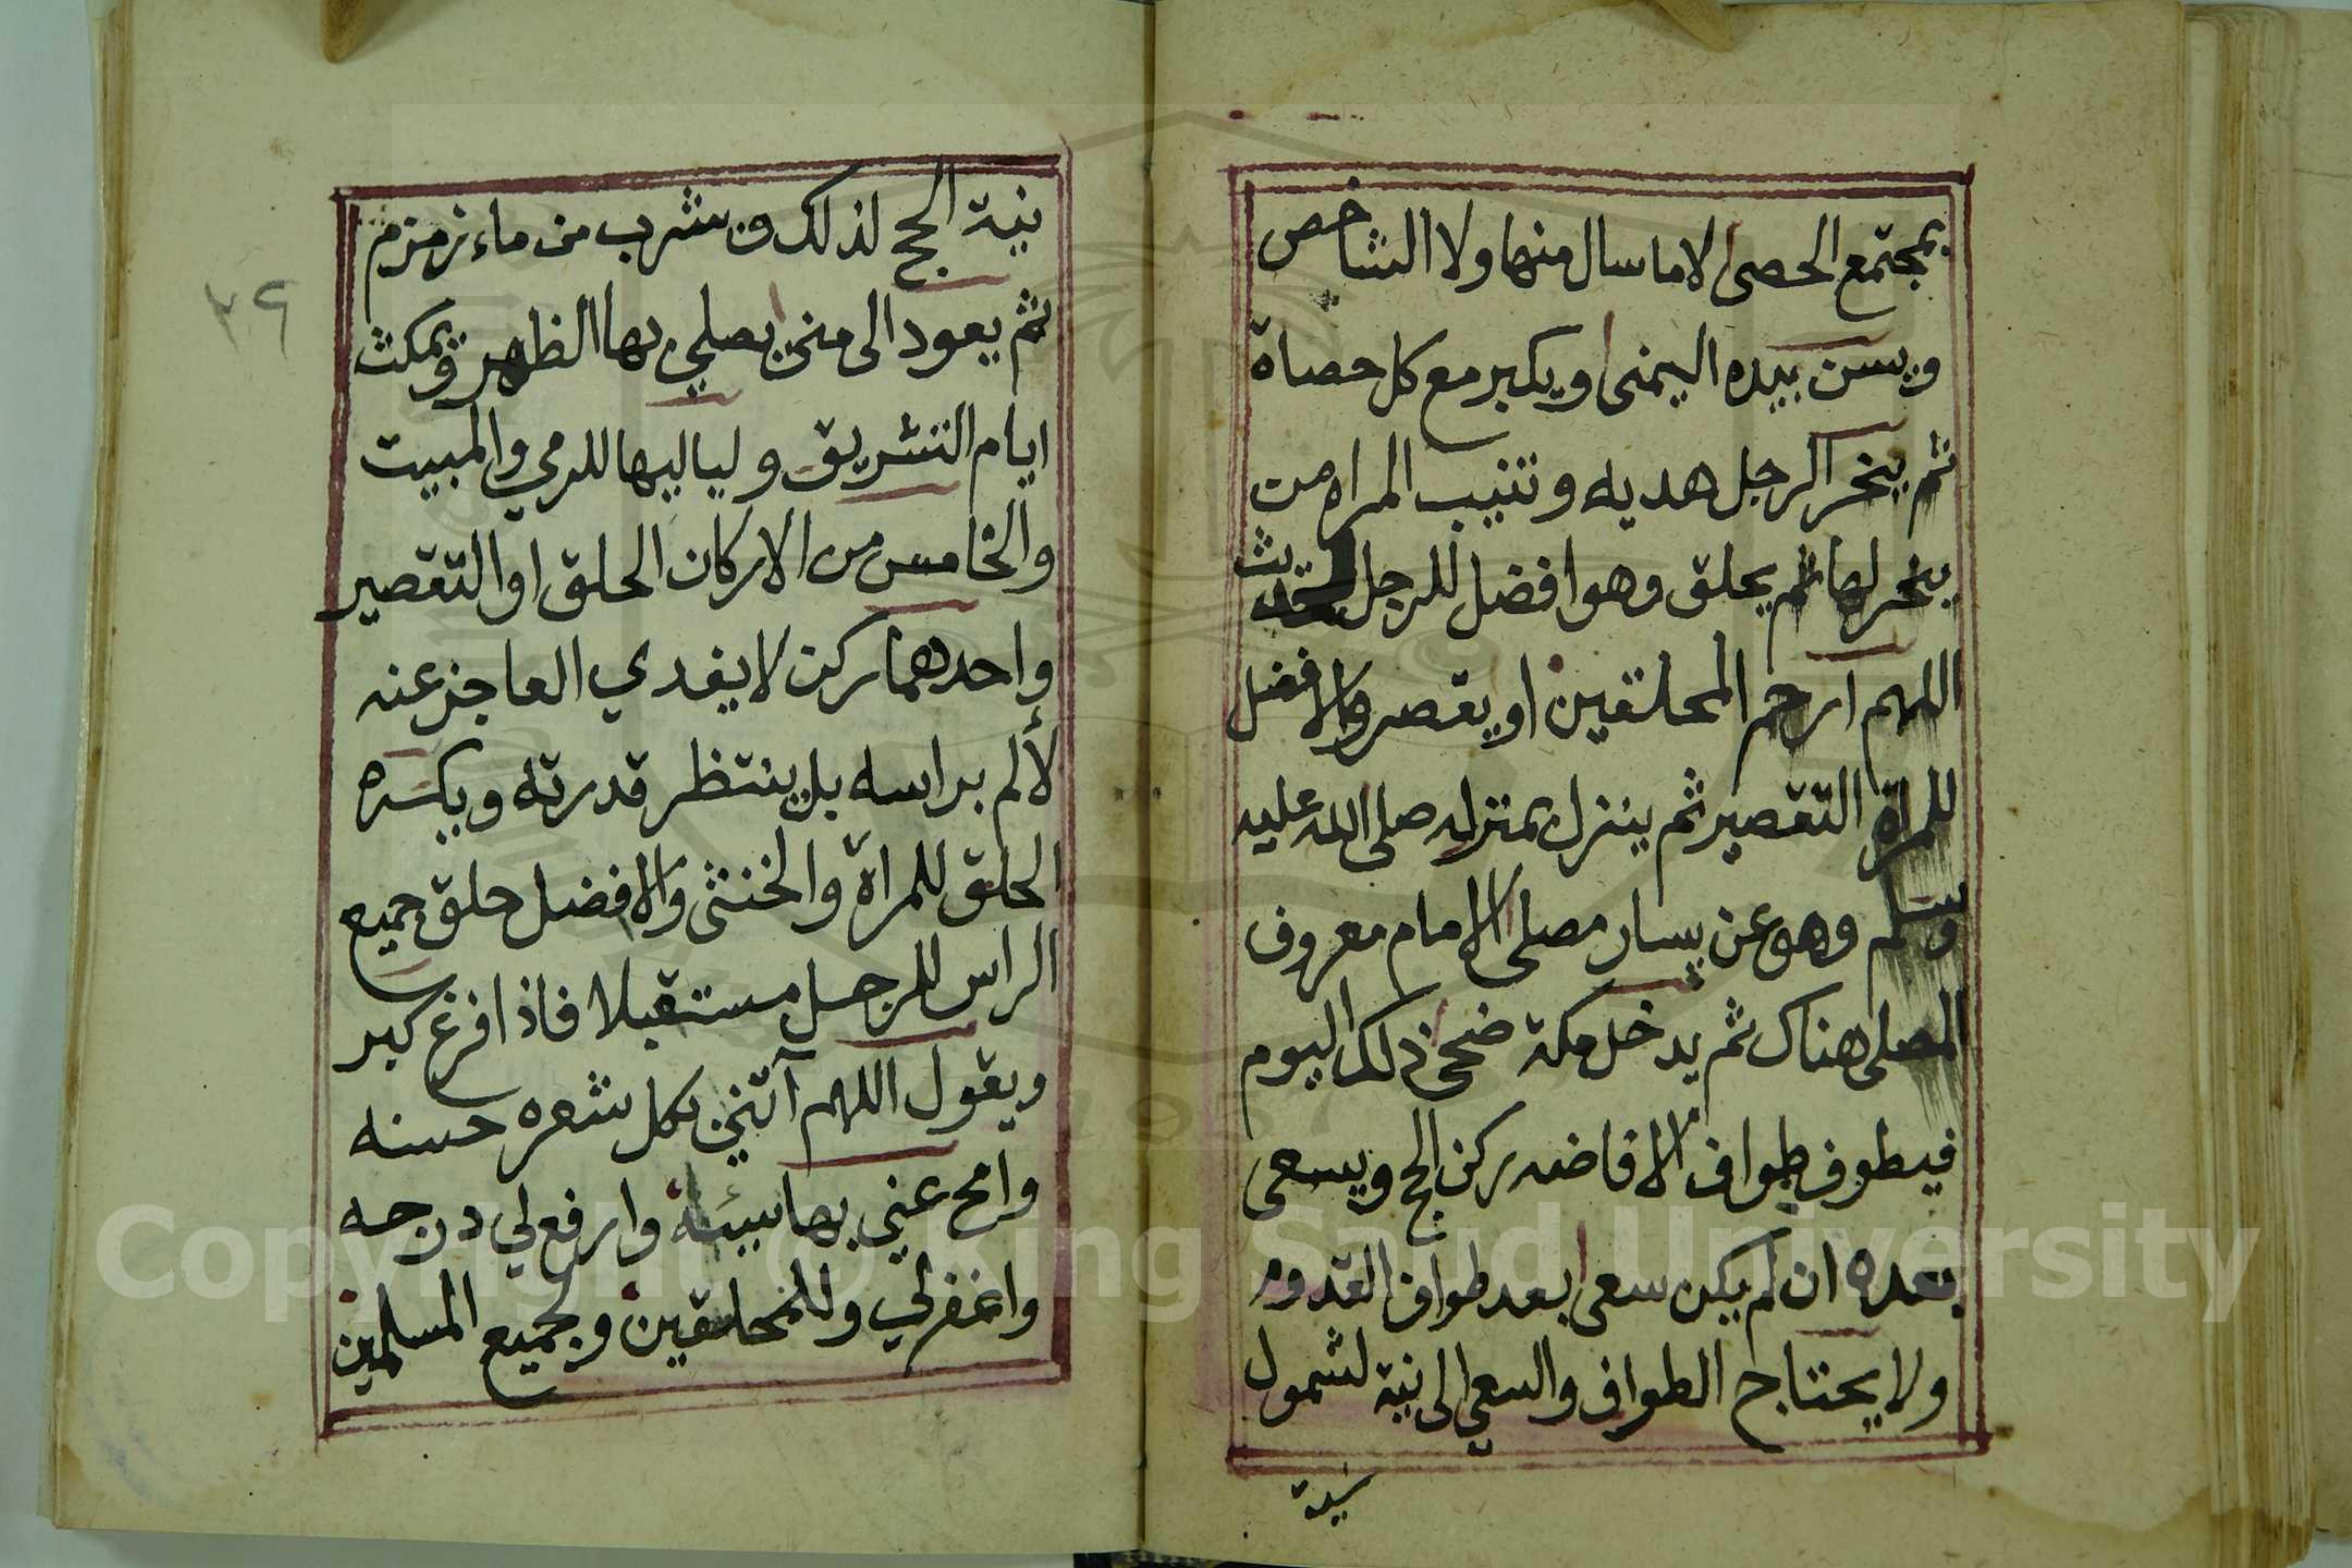 بمجتمع الحصى لا ما سال منها ولا الشاخص
ويسن بيده اليمنى ويكبر مع كل حصاة
ثم ينحر الرجل هديه وتنيب المراه من
ينحر لها ثم يحلق وهو افضل للرجل لحديث
اللهم ارحم المحلقين او يقصر والافضل
للمراة التقصير ثم ينزل بمنزله صلى الله عليه
وسلم وهو عن يسار مصلى الامام معروف
المصلى هناك ثم يدخل مكة ضحى ذلك اليوم
فيطوف طواف الافاضه ركن الحج ويسعى
بعده ان لم يكن سعى بعد طواف القدوم
ولا يحتاج الطواف والسعي الى نية لشمول
نية
نية الحج لذلك وشرب من ماء زمزم
ثم يعود الى منى يصلي بها الظهر ويمكث
ايام التشريق ولياليها للرمي والمبيت
والخامس من الاركان الحلق او التقصير
واحدهما ركن لا يفدي العاجز عنه
لألم براسه بل ينتظر قدرته ويكره
الحلق للمراة والخنثى والافضل حلق جميع
الراس للرجل مستقبلا فاذا افرغ كبر
ويقول اللهم آتني بكل شعره حسنه
وامح عني بها سيئة وارفع لي درجه
واغفر لي وللمحلقين ولجميع المسلمين
٣٩
Copyright © King Saud University
1957